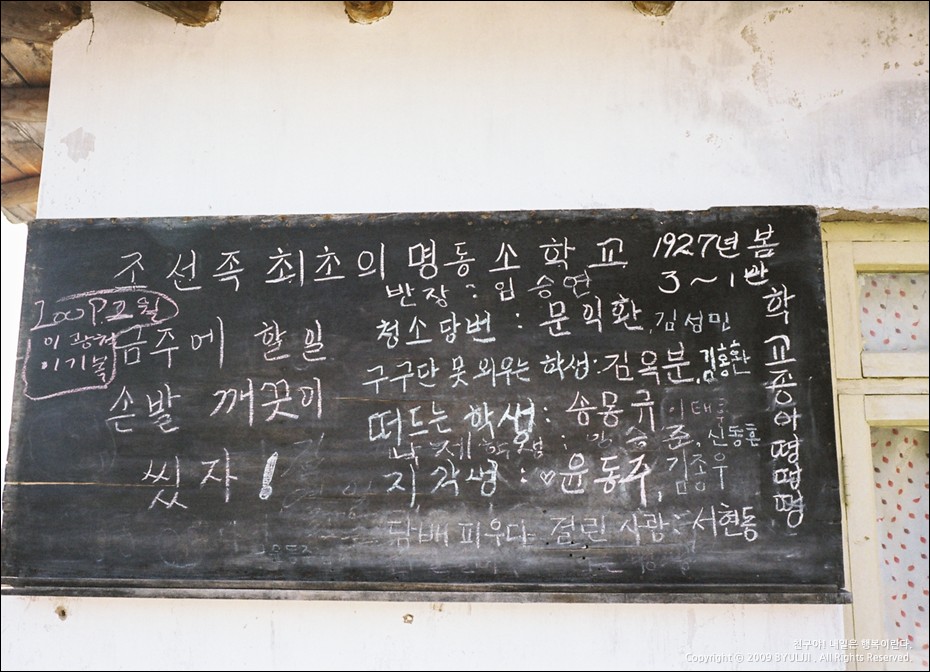 조선족 최초의 명동소학교
1927년 봄
3~1반
반장: 임승연
2009.2월
이광혁
이기북
금주에 할일
손발 깨끗이
씼자!
청소당번: 문익환, 김성민
구구단 못 외우는 학생: 김옥분, 김홍환
떠드는 학생: 송몽규 이태룡
문제학생: 승준, 신동훈
지각생: ♡윤동주, 김종우
담배 피우다 걸린 사람: 서현동
학교종아 땡땡땡
친구야! 내일은 행복이란다.
Copyright ⓒ 2009 BYULJI. All Rights Reserved.